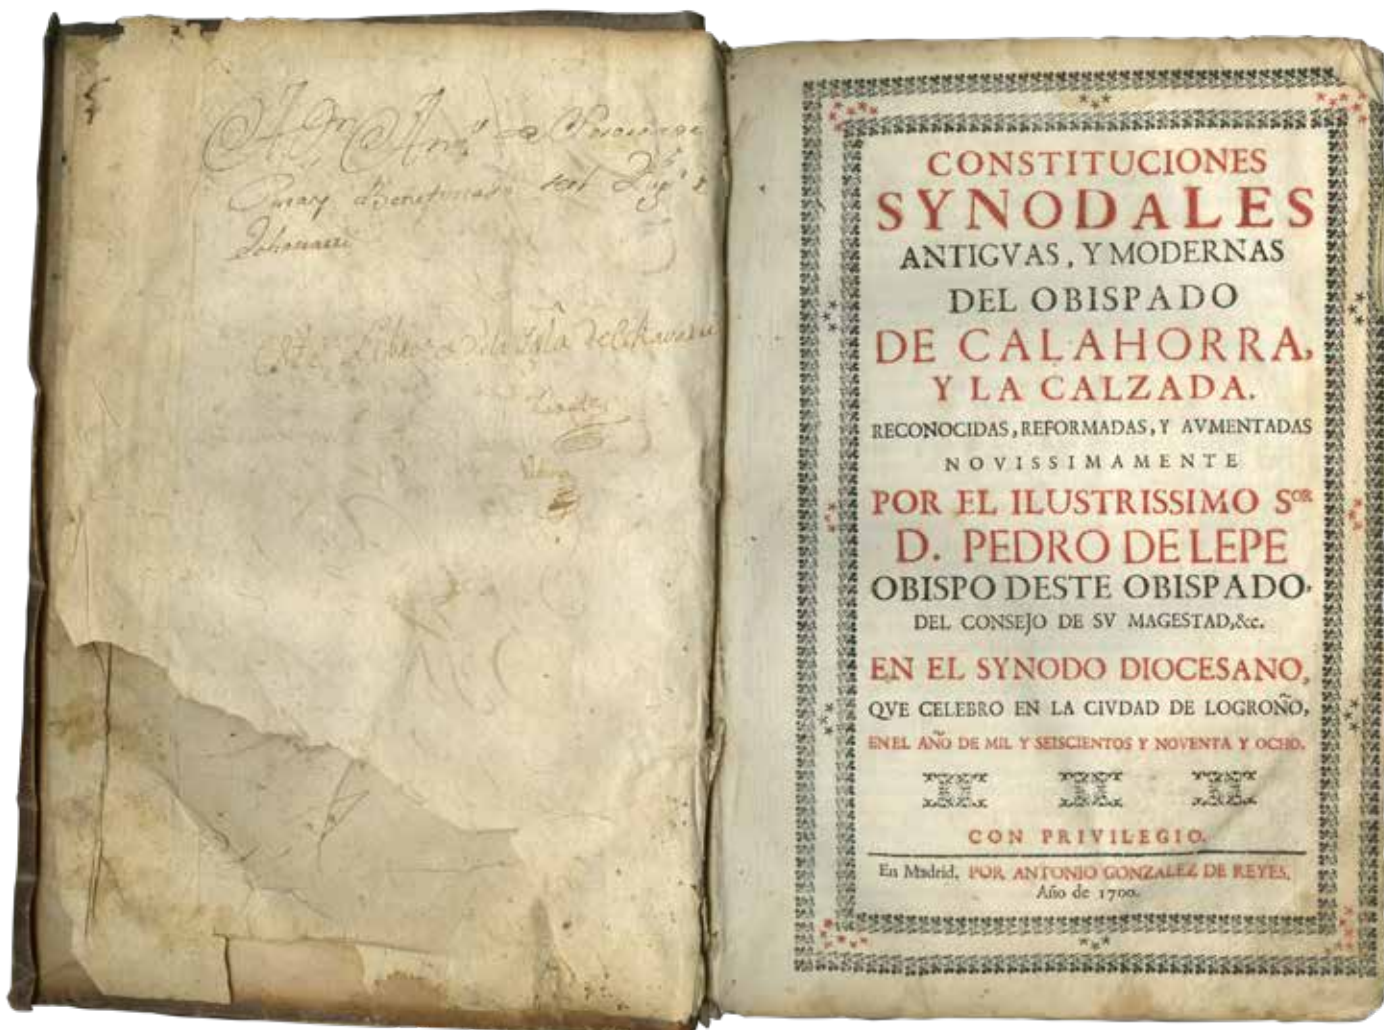 Cura y Beneficiado del Lug.r d
Este Libro es de la Igla de Echavarri
CONSTITUCIONES
SYNODALES
ANTIGVAS, Y MODERNAS
DEL OBISPADO
DE CALAHORRA,
Y LA CALZADA.
RECONOCIDAS, REFORMADAS, Y AVMENTADAS
NOVISSIMAMENTE
POR EL ILUSTRISSIMO SOR
D. PEDRO DE LEPE
OBISPO DESTE OBISPADO,
DEL CONSEJO DE SV MAGESTAD, &c.
EN EL SYNODO DIOCESANO,
QVE CELEBRO EN LA CIVDAD DE LOGROÑO,
EN EL AÑO DE MIL Y SEISCIENTOS Y NOVENTA Y OCHO.
CON PRIVILEGIO.
En Madrid. POR ANTONIO GONZALEZ DE REYES.
Año de 1700.